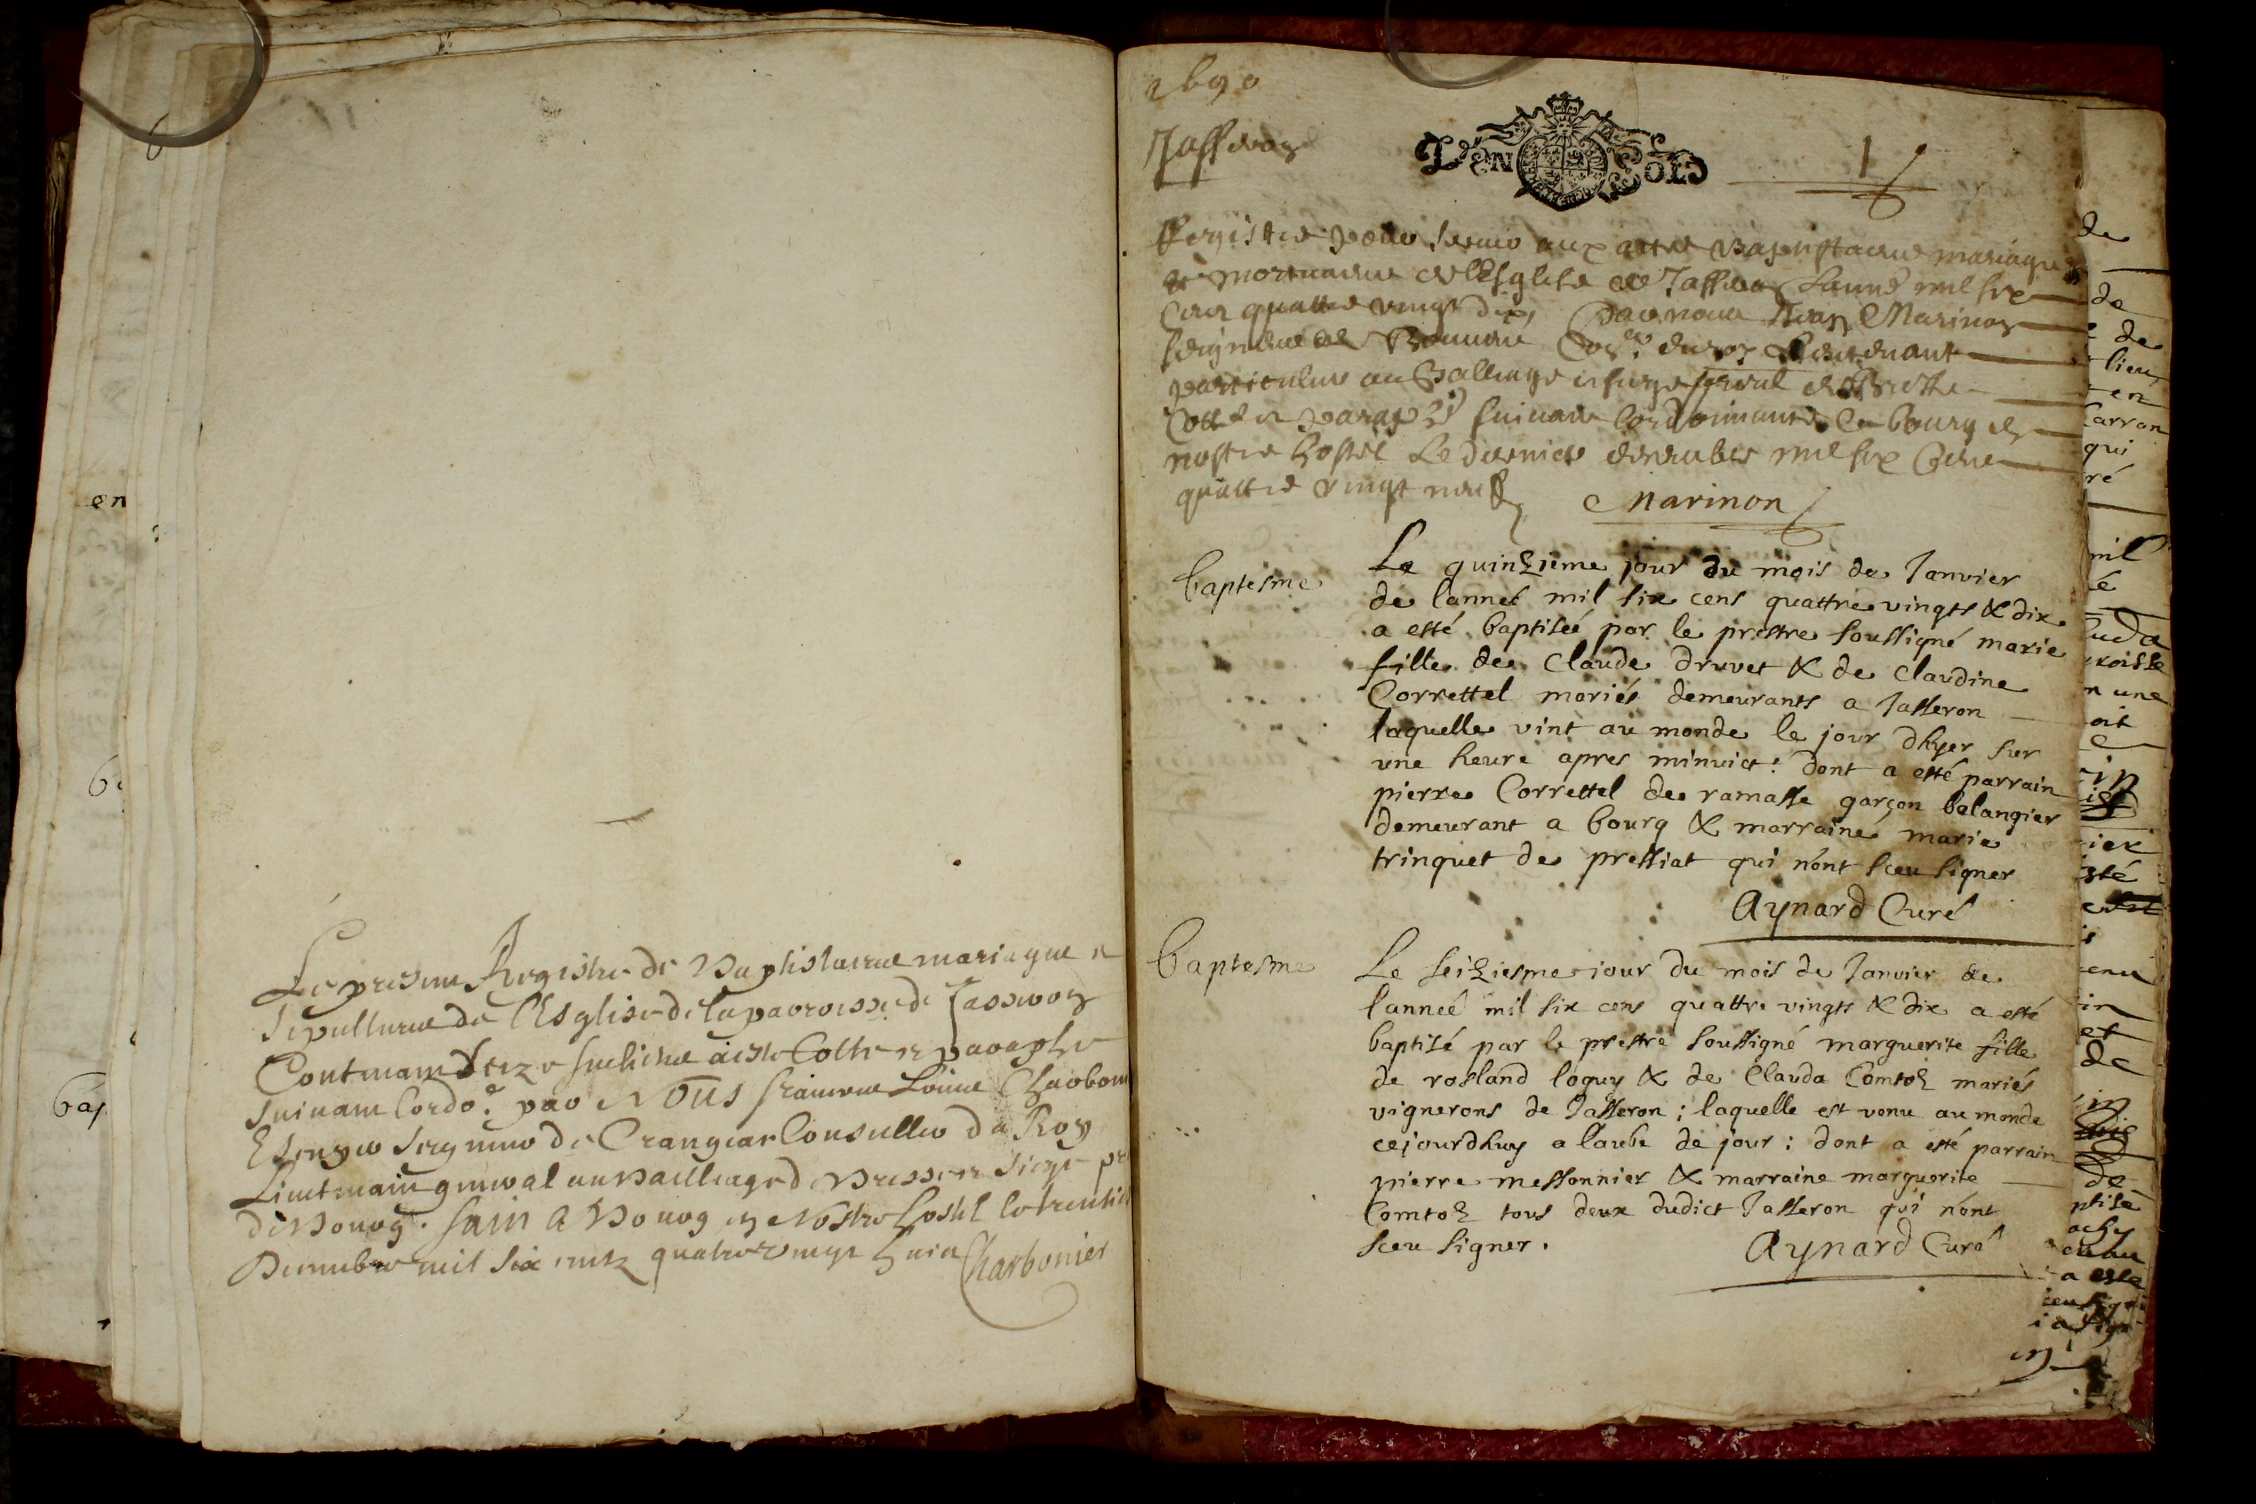 Le present Registre de Baptistaire mariage et
sepulture de l'Esglise de la parroisse de Jasseron
Contenant seize feulietz a este Cotte et paraphe
suivant l'ordo.e par Nous
Escuyer seigneur de Crangeac Conseiller du Roy
Lieutenant general au Bailliage de Bresse et siege
de Bourg. fait a Bourg en Nostre hostel le
Decembre mil six centz quatre vingt huict Charbonier
1690
Jasseron
DEN SOLS
1
Registre pour servir aux actes Baptistaire mariage
et mortuaire de l'Esglise de Jasseron l'année mil six
Cent quattre vingt dix, par nous Jean Marinon
seigneur de Con.er du roy Lieutenant
particulier au Balliage et siege de Bresse
Cotté et paraphé suivant l'ordonnance a bourg en
nostre hostel Le dernier decembre mil six Cent
quattre vingt neuf Marinon
baptesme
Le quinzieme jour du mois de Janvier
de lanneé mil six cens quattre vingts & dix
a esté baptiseé par le prestre soussigné marie
fille de Claude druvet & de claudine
Correttel mariés demeurants a Jasseron
laquelle vint au monde le jour dhyer sur
une heure apres minuict : dont a esté parrain
pierre Correttel de ramasse garçon bolangier
demeurant a bourg & marraine marie
trinquet de pressiat qui n'ont sceu signer
Aynard Curé
baptesme
Le seiziesme jour du mois de Janvier de
lanneé mil six cens quattre vingts & dix a esté
baptisé par le prestre soussigné marguerite fille
de rosland loguy & de Clauda Comtoz mariés
vignerons de Jasseron ; laquelle est venu au monde
cejourdhuy a laube de jour : dont a esté parrain
pierre messonnier & marraine marguerite
Comtoz tous deux dudict Jasseron qui n'ont
sceu signer .
Aynard Curé